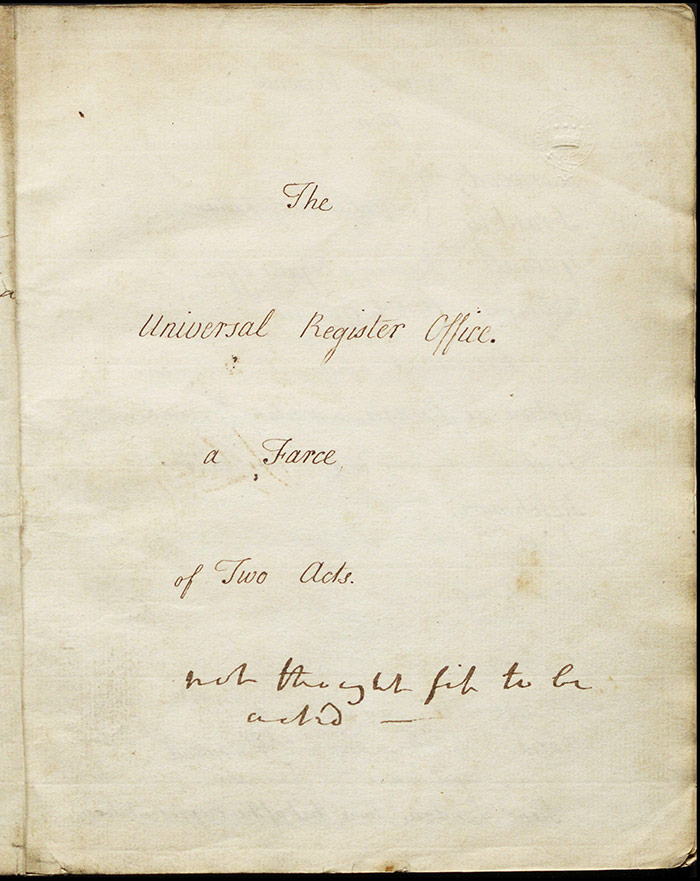 The
Universal Register Office.
a Farce
of Two Acts.
not thought fit to be
acted —